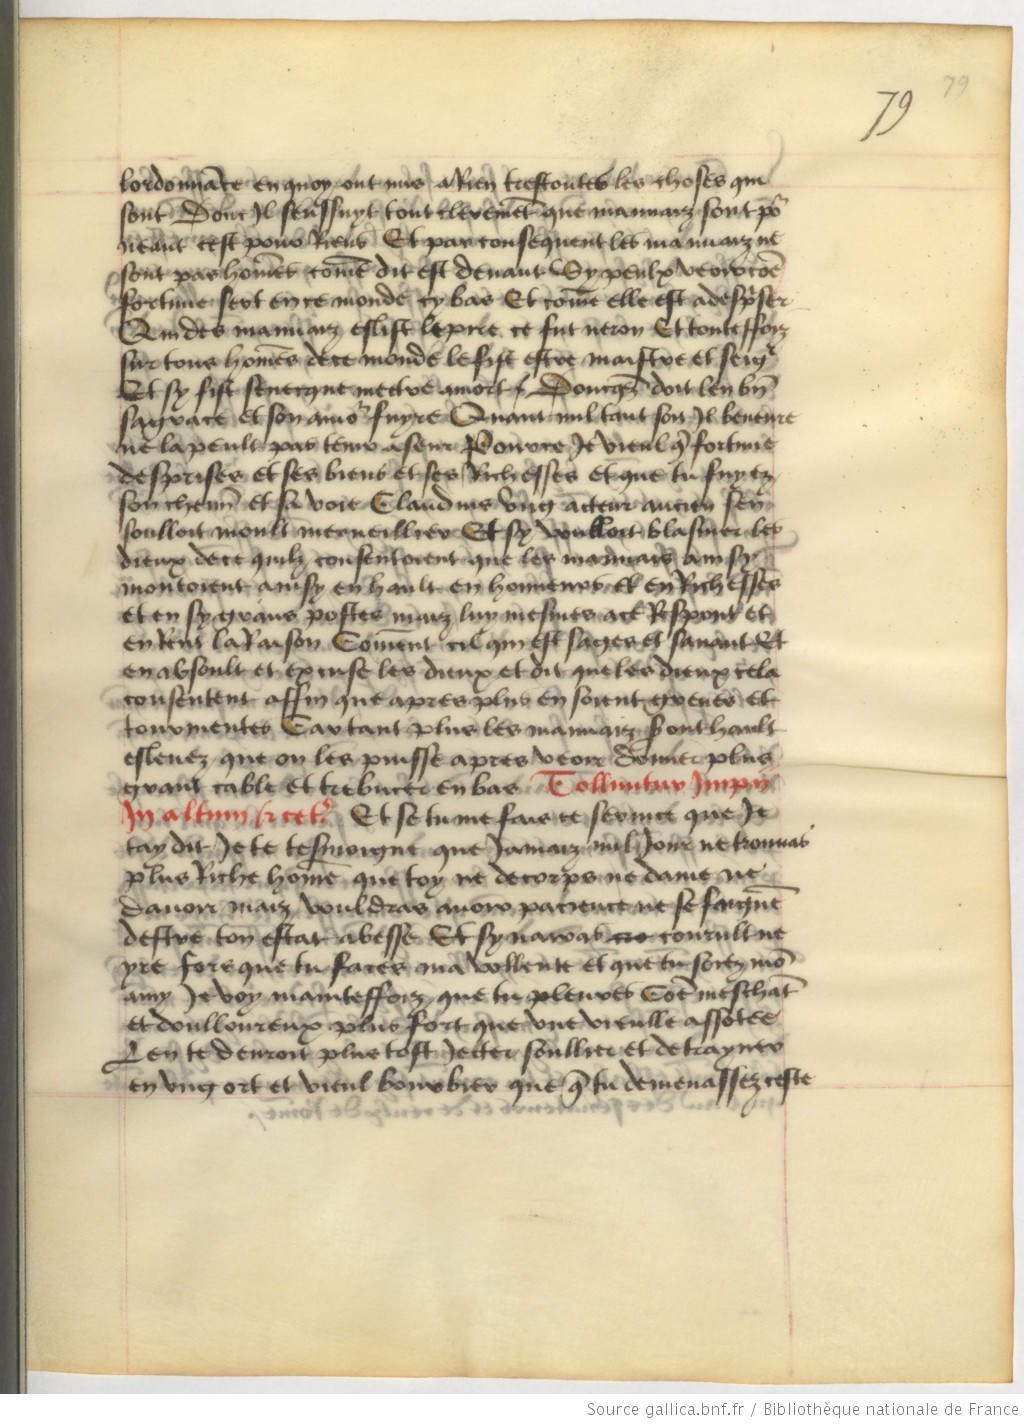 79
79
lordonnāce en quoy ont mis a Rien trestoutes les choses qui
sont Donc Il senssuyt tout clerem̄et que mauuaiz sont po
neant cest pour Riens Et par consequent les mauuaiz ne
sont pas hom̄es com̄e dit est deuant Sy peulx veoir cōe
fortune sert en ce monde cy bas Et com̄e elle est a despser
Qui des mauuaiz eslist le pire ce fut neron Et touteffoiz
sur tous hom̄es de ce monde le fist estre maistre et seigr
Et sy fist senecque mectre a mort / Doncq̄ doit len bn̄
sa grace et son amor fuyre Quant nul tant soit Il beneure
ne la peult pas tenir a seur Pour ce Je vieul q̄ fortune
desprises et ses biens et ses Richesses et que tu fuyez
son chemī et sa voie Claudius vng acteur ancien sen
soulloit moult merueillier Et sy voulloit blasmer les
dieux de ce quilz consentoient que les mauuais ainsy
montoient ainsy en hault en honneurs et en Richesses
et en sy grans postes maiz luy mesmes a ce Respont et
en Rent la Raison Com̄ent cil qui est sages et sauant Et
en absoult et excuse les dieux et dit que les dieux cela
consentent affin que apres plus en soient greues et
tourmentes Car tant plus les mauuaiz sont hault
esleuez que on les puisse apres veoir donner plus
grant cable et trebucer en bas Tolluntur Impii
In altum &cetr Et se tu me fais ce seruice que Je
tay dit Je te tesmoigne que Jamaiz nul Jour ne trouuas
plus Riche hom̄e que toy ne de corps ne dame ne
dauoir maiz vouldras auoir pacience ne se faignēe
destre ton estat abesse Et sy nauras courult ne
yre fors que tu faces ma vollente et que tu soiez mō
amy Je voy maintesfoiz que tu pleures Cōe meschāt
et doulloureux plus fort que vne vieulle assotee
Len te deuroit plus tost Jecter soullier et detrayner
en vng ort et vieul bourbier que q̄ tu demenassez ceste
Source gallica.bnf.fr / Bibliothèque nationale de France